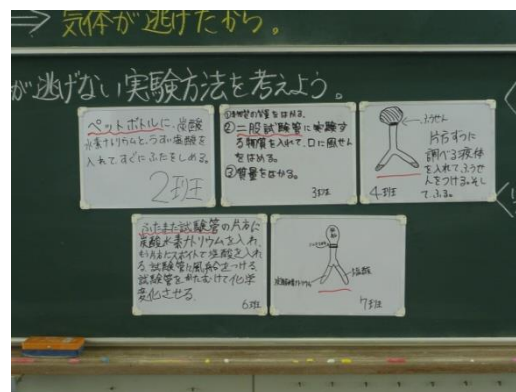 ⇒ 気体が逃げたから。
が逃げない実験方法を考えよう。
ペットボトルに、炭酸
水素ナトリウムと、うすい塩酸を
入れてすぐにふたをしめる。
2班
の質量をはかる。
②二股試験管に実験す
る物質を入れて、口に風せん
をはめる。
③質量をはかる。
3班
ふうせん
片方ずつに
調べる液体
を入れて、ふうせ
んをつける。そし
て、ふる。
4班
ふたまた試験管の片方に
炭酸水素ナトリウムを入れ、
もう片方にスポイトで塩酸を入れ
る。試験管に風船をつける。
試験管をかたむけて化学
変化させる。
6班
塩酸
7班